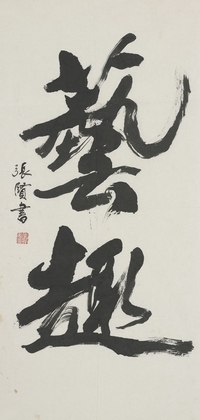 藝趣
張隱書